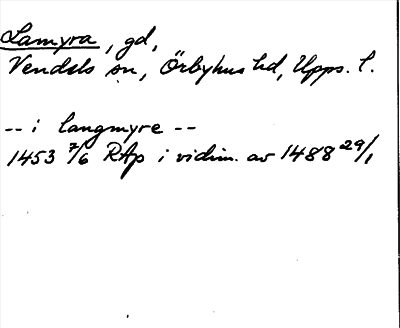 Lamyra, gd,
Vendels sn, Örbyhus hd, Upps. l.
-- i langmyre --
1453 7/6 RAp i vidim. av 1488 29/1